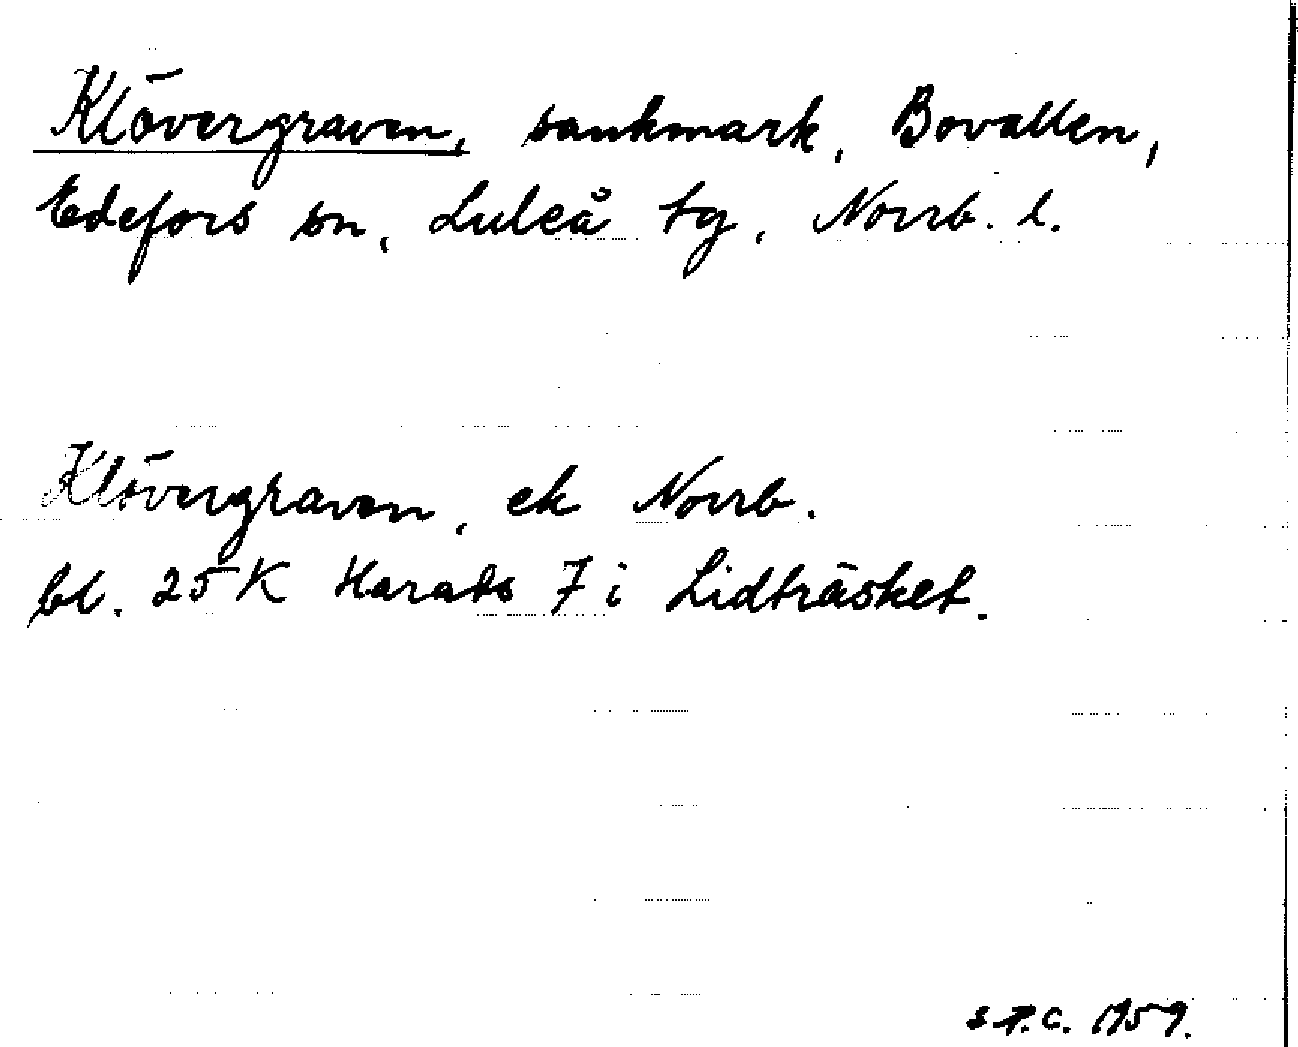 Klövergraven, sankmark, Bovallen,
Edefors sn, Luleå tg, Norrb. l.
Klövergraven, ek Norrb.
bl. 25 K Harads 7 i Lidträsket.
1959.